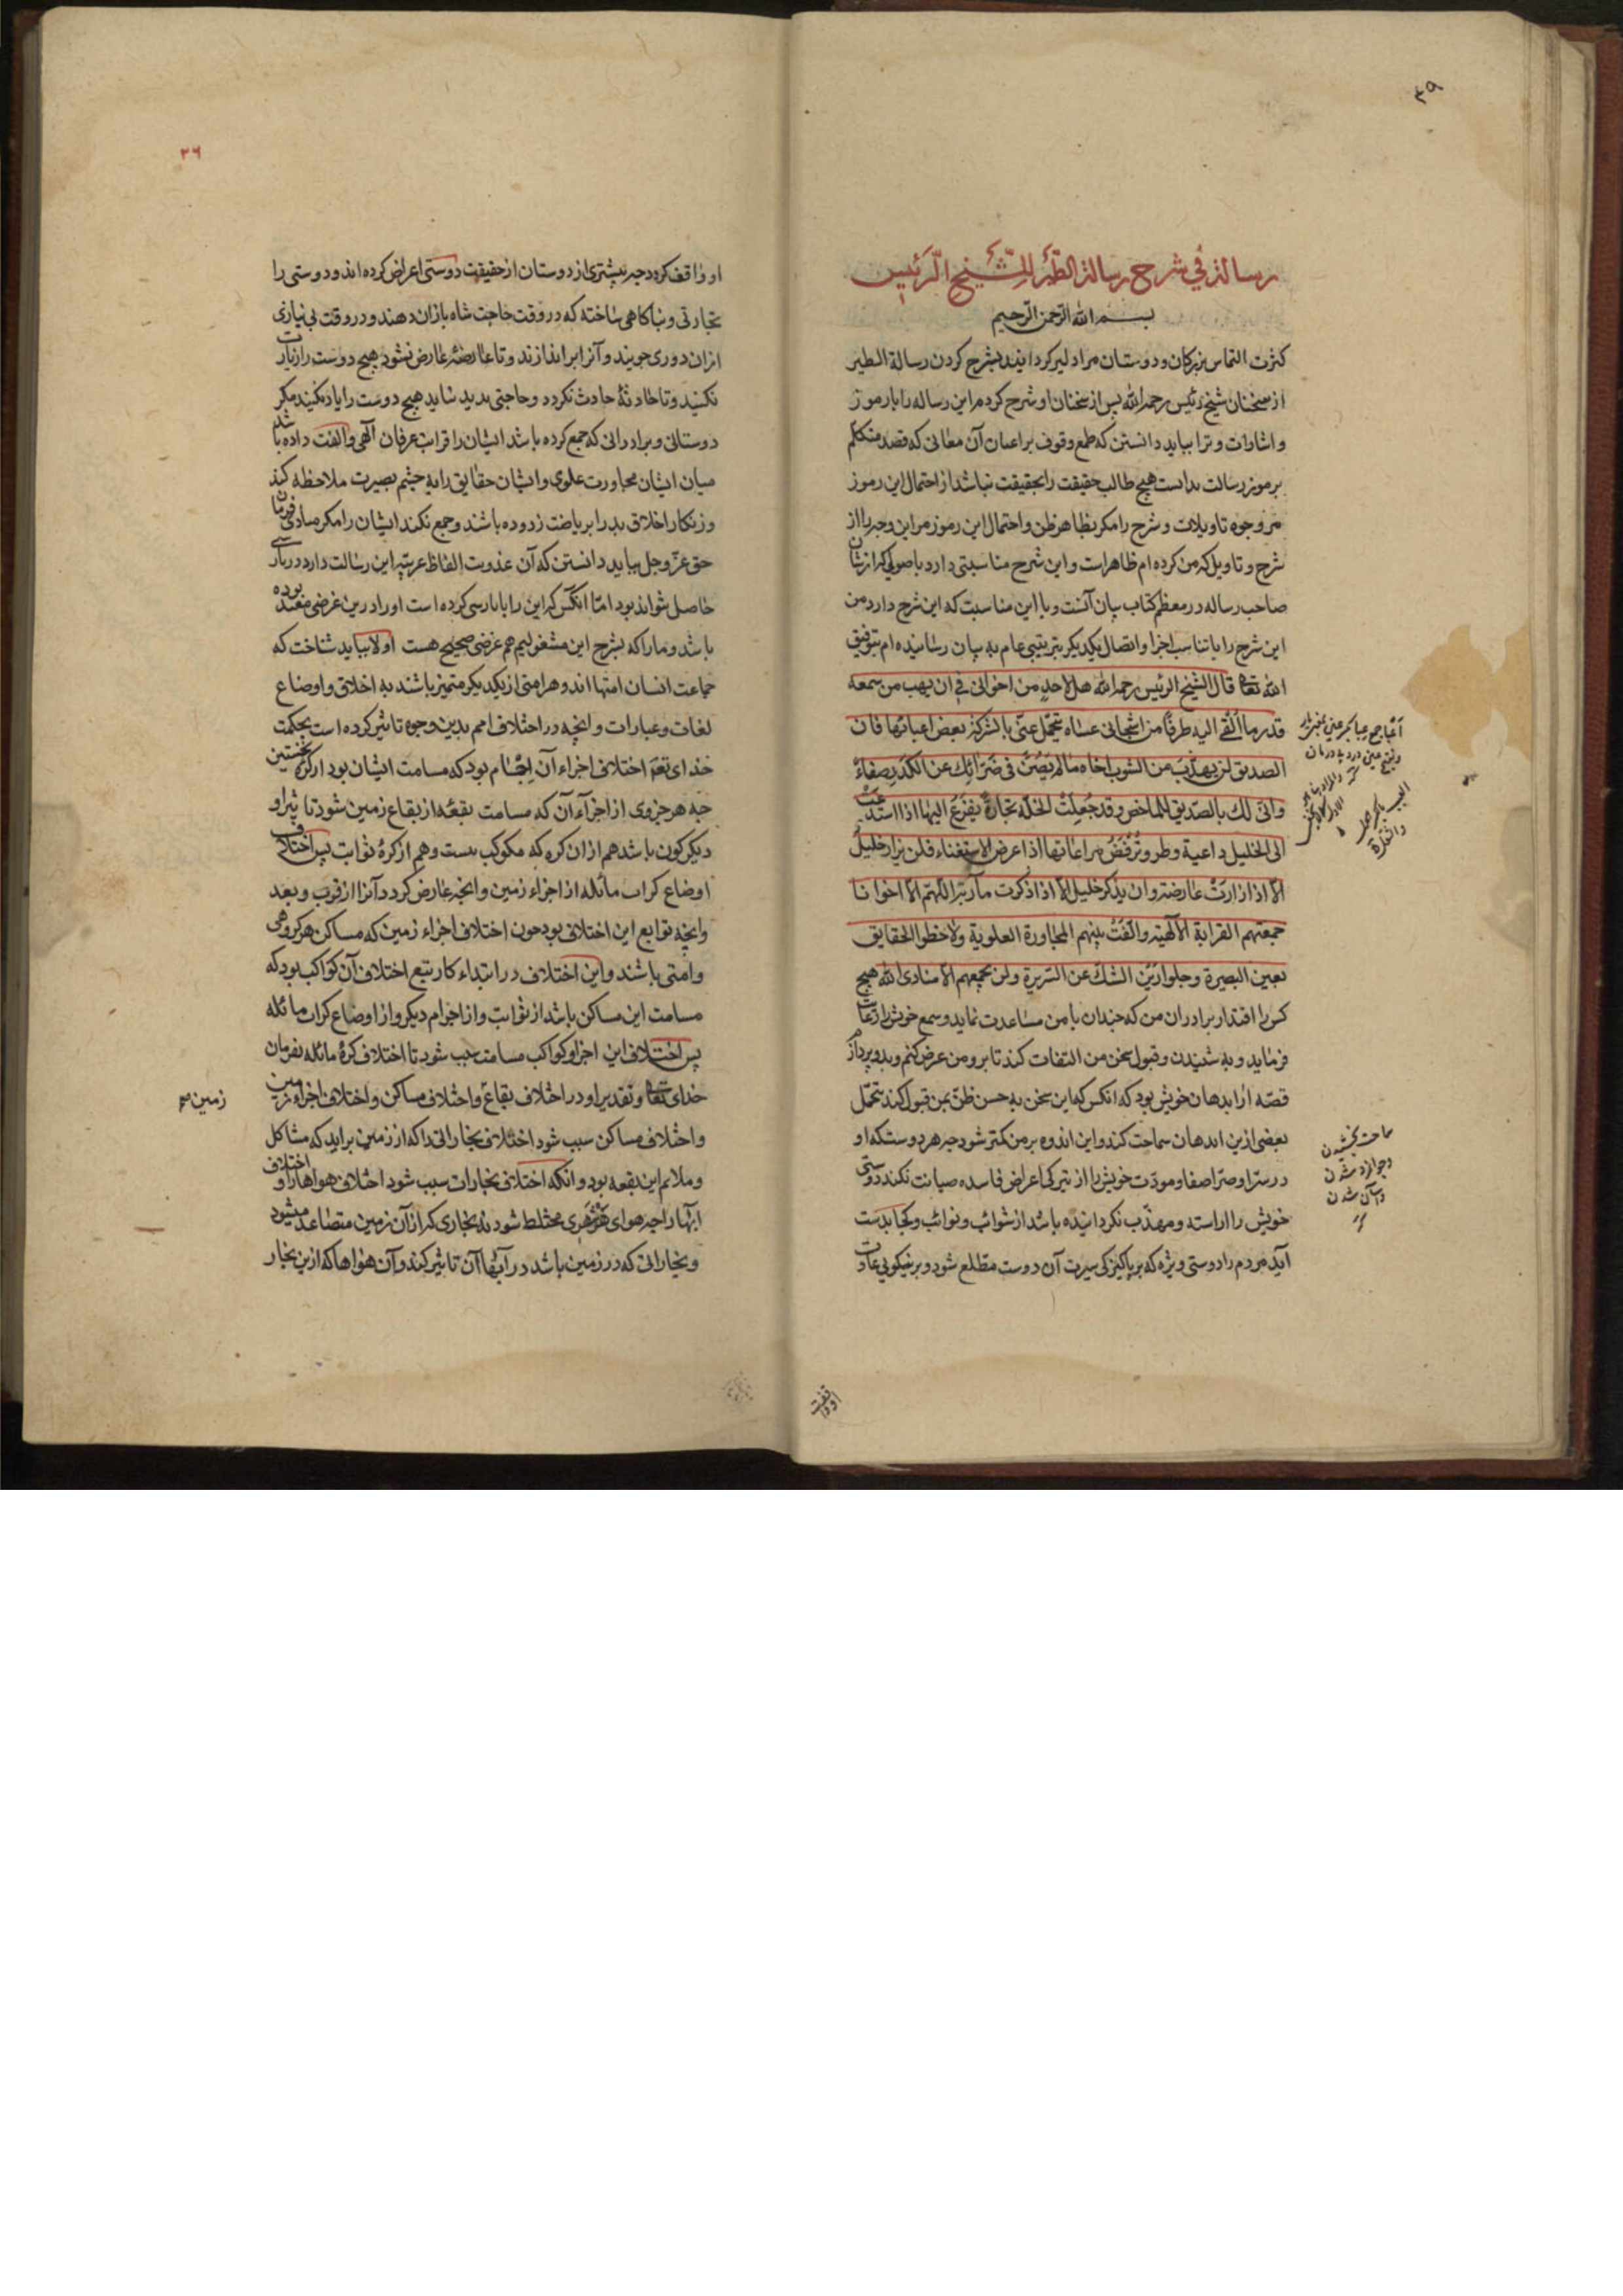 ۳۹
رسالة في شرح رسالة الطير للشيخ الرئيس
بسم الله الرحمن الرحيم
كثرت التماس بزركان ودوستان مرا دلير كردانيد بشرح كردن رسالة الطير
از سخنان شيخ رئيس رحمه الله پس از سخنان او شرح كردم اين رساله را با رموز
واشارات وترا ببايد دانستن كه طمع وقوف بر اعيان آن معانى كه قصد متكلم
برموز رسالت بدانست هيچ طالب حقيقت را بحقيقت نباشد از احتمال اين رموز
مر وجوه تاويلات وشرح را مكر بظاهر ظن واحتمال اين رموز مر اين وجه را از
شرح وتاويل كه من كرده ام ظاهر است واين شرح مناسبتى دارد با اصولى كه از شان
صاحب رساله در معظم كتاب بيان آنست وبا اين مناسبت كه اين شرح دارد من
اين شرح را با تناسب اجزا واتصال يكديكر بترتيبى عام به بيان رسانيده ام بتوفيق
الله تعالى قال الشيخ الرئيس رحمه الله هل لاحد من اخوانى فى ان يهب من سمعه
قدر ما القى اليه طرفا من اشجانى عساه يتحمل عنى بالشركة بعض اعبائها فان
الصديق لن يهذب من الشوب اخاه ما لم يصن فى ضرائك عن الكدر صفاء
وانى لك بالصديق المماخص وقد جعلت الخلة تجارة يفزع اليها اذا استدعت
الى الخليل داعية وطر وترفض مراعاتها اذا عرض الاستغناء فلن يزار خليل
الا اذا زارت عارضة وان يذكر خليل الا اذا ذكرت ماربة اللهم الا اخوانا
جمعتهم القرابة الالهية والفت بينهم المجاورة العلوية ولاحظوا الحقايق
بعين البصيرة وجلوا رين الشك عن السريرة ولن يجمعهم الا منادى الله هيچ
كس را افتد از برادران من كه چندان با من مساعدت نمايد وسمع خويش را رعايت
فرمايد وبه شنيدن وقبول سخن من التفات كند تا برو من عرض كنم وبدو پردازم
قصه از اندهان خويش بود كه انكس كه اين سخن به حسن ظن بمن قبول كند تحمل
بعضى ازين اندهان سماحت كند واين اندوه بر من كمتر شود چه هر دوستكه او
در سرا وضرا صفا ومودت خويش را از تيركى اعراض فاسده صيانت نكند دوستى
خويش را اراسته ومهذب نكردانيده باشد از شوائب ونوائب وكجا بدست
آيد مردم را دوستى ويژه كه بر پاكيزكى سيرت آن دوست مطلع شود وبر نيكويى عادات
سماحت بخشيدن
وجوانمرد شدن
وآسان شدن
او واقف
۳۶
او واقف كردد چه بيشترى از دوستان از حقيقت دوستى اعراض كرده اند ودوستى را
تجارتى وپناكاهى ساخته كه در وقت حاجت شاه بازان دهند ودر وقت بى نيازى
ازان دورى جويند وآنرا براندازند وتا عارضهٔ عارض نشود هيچ دوست را زيارت
نكنيد وتا حادثهٔ حادث نكردد وحاجتى پديد نيايد هيچ دوست را ياد نكنيد مكر
دوستانى وبرادرانى كه جمع كرده باشد ايشان را قرابت عرفان الهى والفت داده باشد
ميان ايشان مجاورت علوى وايشان حقايق را به چشم بصيرت ملاحظه كند
وزنكار اخلاق بد را برياضت زدوده باشند وجمع نكند ايشان را مكر منادى فرمان
حق عز وجل ببايد دانستن كه آن عذوبت الفاظ عربيه اين رسالت دارد در پارسى
حاصل نتواند بود اما انكس كه اين را با پارسى كرده است او را درين غرضى مفيد بوده
باشد وما را كه بشرح اين مشغوليم هم غرضى صحيح هست اولا ببايد شناخت كه
جماعت انسان امتها اند وهر امتى از يكديكر متميز باشند به اخلاق واوضاع
لغات وعبارات وانچه در اختلاف امم بدين وجوه تاثير كرده است بحكمت
خداى تعالى اختلاف اجزاء آن اجسام بود كه مسامت ايشان بود از كرهٔ نخستين
چه هر جزوى از اجزآء آن كه مسامت بقعهٔ از بقاع زمين شود تا ثير او
ديكركون باشد هم ازان كره كه مكوكب نيست وهم از كرهٔ ثوابت پس اختلاف
اوضاع كرات مائله از اجزاء زمين وانچه عارض كردد آنرا از قرب وبعد
وانچه توابع اين اختلاف بود چون اختلاف اجزاء زمين كه مساكن هر كروهى
وامتى باشند واين اختلاف در ابتداء كار بتبع اختلاف آن كواكب بود كه
مسامت اين مساكن باشد از ثوابت واز اجرام ديكر واز اوضاع كرات مائله
پس اختلاف اين اجزا وكواكب مسامت سبب شود تا اختلاف كرهٔ مائله بفرمان
خداى تعالى وتقدير او در اختلاف بقاع واختلاف مساكن واختلاف اجزاء زمين
زمين
واختلاف مساكن سبب شود اختلاف بخاراتى را كه از زمين برايد كه مشاكل
وملائم اين بقعه بود وانكه اختلاف بخارات سبب شود اختلاف هواها را واختلاف
ابها را چه هواى هر شهرى مختلط شود به بخارى كه از آن زمين متصاعد ميشود
وبخاراتى كه در زمين باشد در آبها آن تاثير كند وآن هواها كه ازين بخار